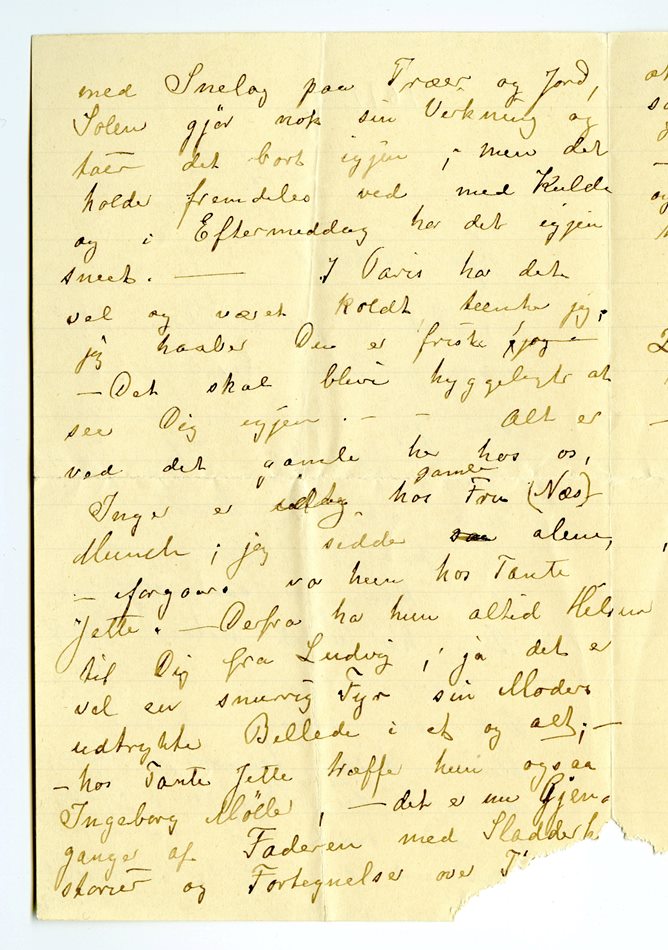 med Snelag paa Træer og Jord,
Solen gjør nok sin Virkning og
taer det bort igjen, men det
holder fremdeles ved med Kulde
og i Eftermeddag har det igjen
sneet. — I Paris har det
vel og været koldt, tænker jeg,
jeg haaber Du er frisk
— Det skal blive hyggeligt at
see Dig igjen. — — Alt er
ved det gamle her hos os,
gamle
Inger er hos Fru (Næs)
Munch; jeg sidder alene,
— forgaars var hun hos Tante
Jette. — Derfra har hun altid Helsen
til Dig fra Ludvig, ja det er
vel en snurrig Fyr sin Moders
udtrykte Billede i et og alt; —
— hos Tante Jette træffer hun ogsaa
Ingeborg Mölle, — det er en Gjen-
ganger af Faderen med Sladder
storier og Fortegnelser over